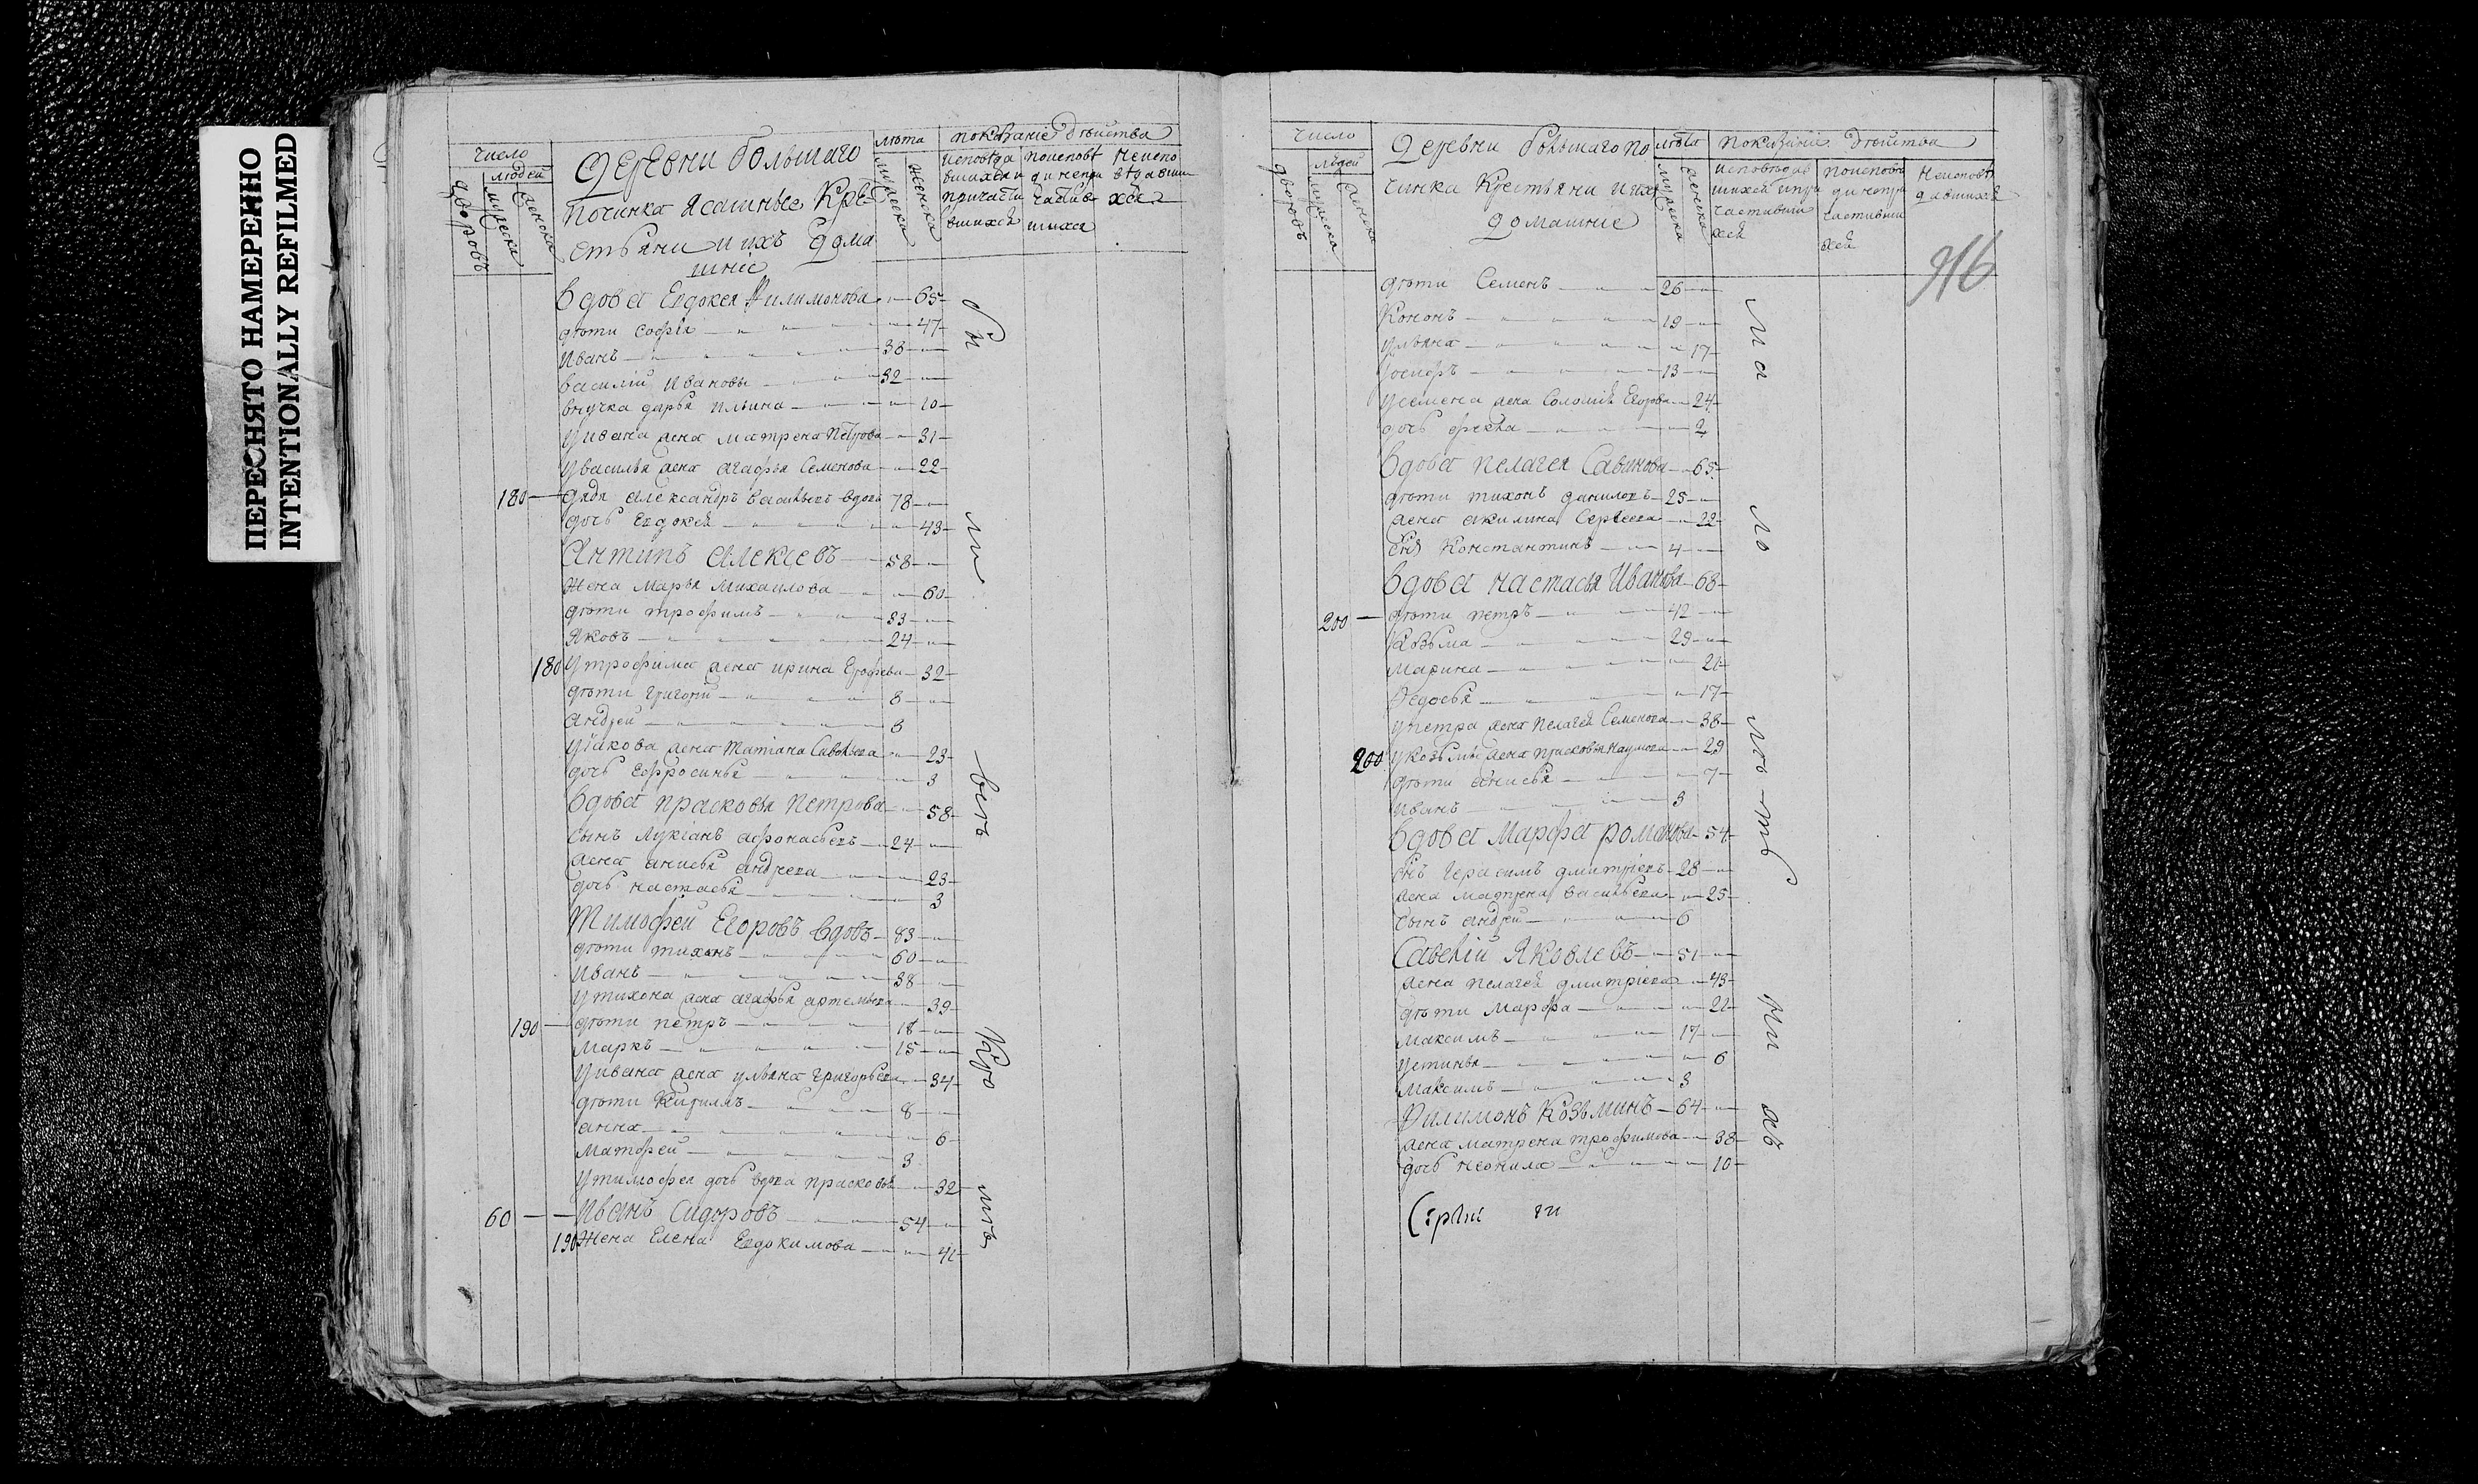 ПЕРЕСНЯТО НАМЕРЕННО
INTENTIONALLY REFILMED
число
людей
дворовъ
мужеска
женска
Деревни большаго
починка ясашные Кре
стьяни и ихъ дома
шніе
лѣта
мужеска
женска
показаніе дѣйства
исповѣда вшихся и причасти вшихся
поисповѣ ди непри частив шихся
Неиспо вѣдавши хся
Вдова Евдокея Филимонова 65
дѣти Софья 47
Иванъ 38
василій Ивановы 32
внучка дарья Ильина 10
у ивана жена матрена Петрова 31
у василья жена агафья Семенова 22
180 дядя александръ васильевъ вдовъ 78
дочь Евдокея 43
Антипъ Алексѣевъ 58
Жена марья михаилова 60
дѣти трофимъ 33
яковъ 24
180 у трофима жена ирина Ерофѣева 32
дѣти григорій 8
андрей 3
у іакова жена татіана Савельева 23
дочь Ефросинья 3
Вдова прасковья Петрова 58
Сынъ лукіанъ афонасьевъ 24
жена анисья андреева 23
дочь настасья 3
Тимофей Егоровъ вдовъ 83
дѣти тихонъ 60
Иванъ 38
у тихона жена агафья артемьева 39
190 дѣти петръ 18
маркъ 15
у ивана жена ульяна григорьева 34
дѣти Кирилъ 8
анна 6
матфей 3
у тимофея дочь вдова прасковья 32
60 Иванъ Сидоровъ 54
190 Жена Елена Евдокимова 41
число
людей
дворовъ
мужеска
женска
Деревни большаго по
чинка Крестьяни и ихъ
домашніе
лѣта
мужеска
женска
показаніе дѣйства
исповѣдав шихся и при частивши хся
поисповѣ ди непри частивши хся
Неисповѣ давшихся
916
дѣти Семенъ 26
Кононъ 19
ульяна 17
іосифъ 13
у семена жена Соломія Егорова 24
дочь фекла 2
Вдова пелагея Савинова 65
дѣти тихонъ даниловъ 25
жена акилина Сергѣева 22
сынъ Константинъ 4
Вдова настасья Иванова 68
200 дѣти петръ 42
Козьма 29
марина 21
Федосья 17
у петра жена пелагея Семенова 38
200 у козьмы жена прасковья наумова 29
дѣти анисья 7
иванъ 3
Вдова Марфа романова 54
снъ Герасимъ дмитріевъ 28
жена матрена васильева 25
Сынъ андрей 6
Савелій Яковлевъ 51
жена пелагея дмитріева 43
дѣти марфа 21
максимъ 17
устинья 6
максимъ 3
Филимонъ Козьминъ 64
жена матрена трофимова 38
дочь неонила 10